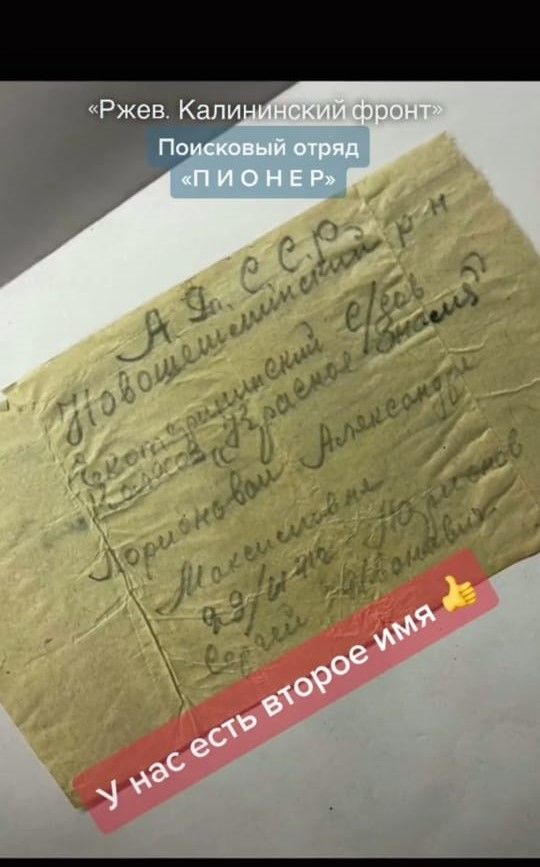 «Ржев. Калининский фронт»
Поисковый отряд
«ПИОНЕР»
С.С.Р.
Новошешминский р-н
с/сов
Колхоз "Красное Знамя"
Александре
Максимовне
Сергей Иванович
У нас есть второе имя 👍